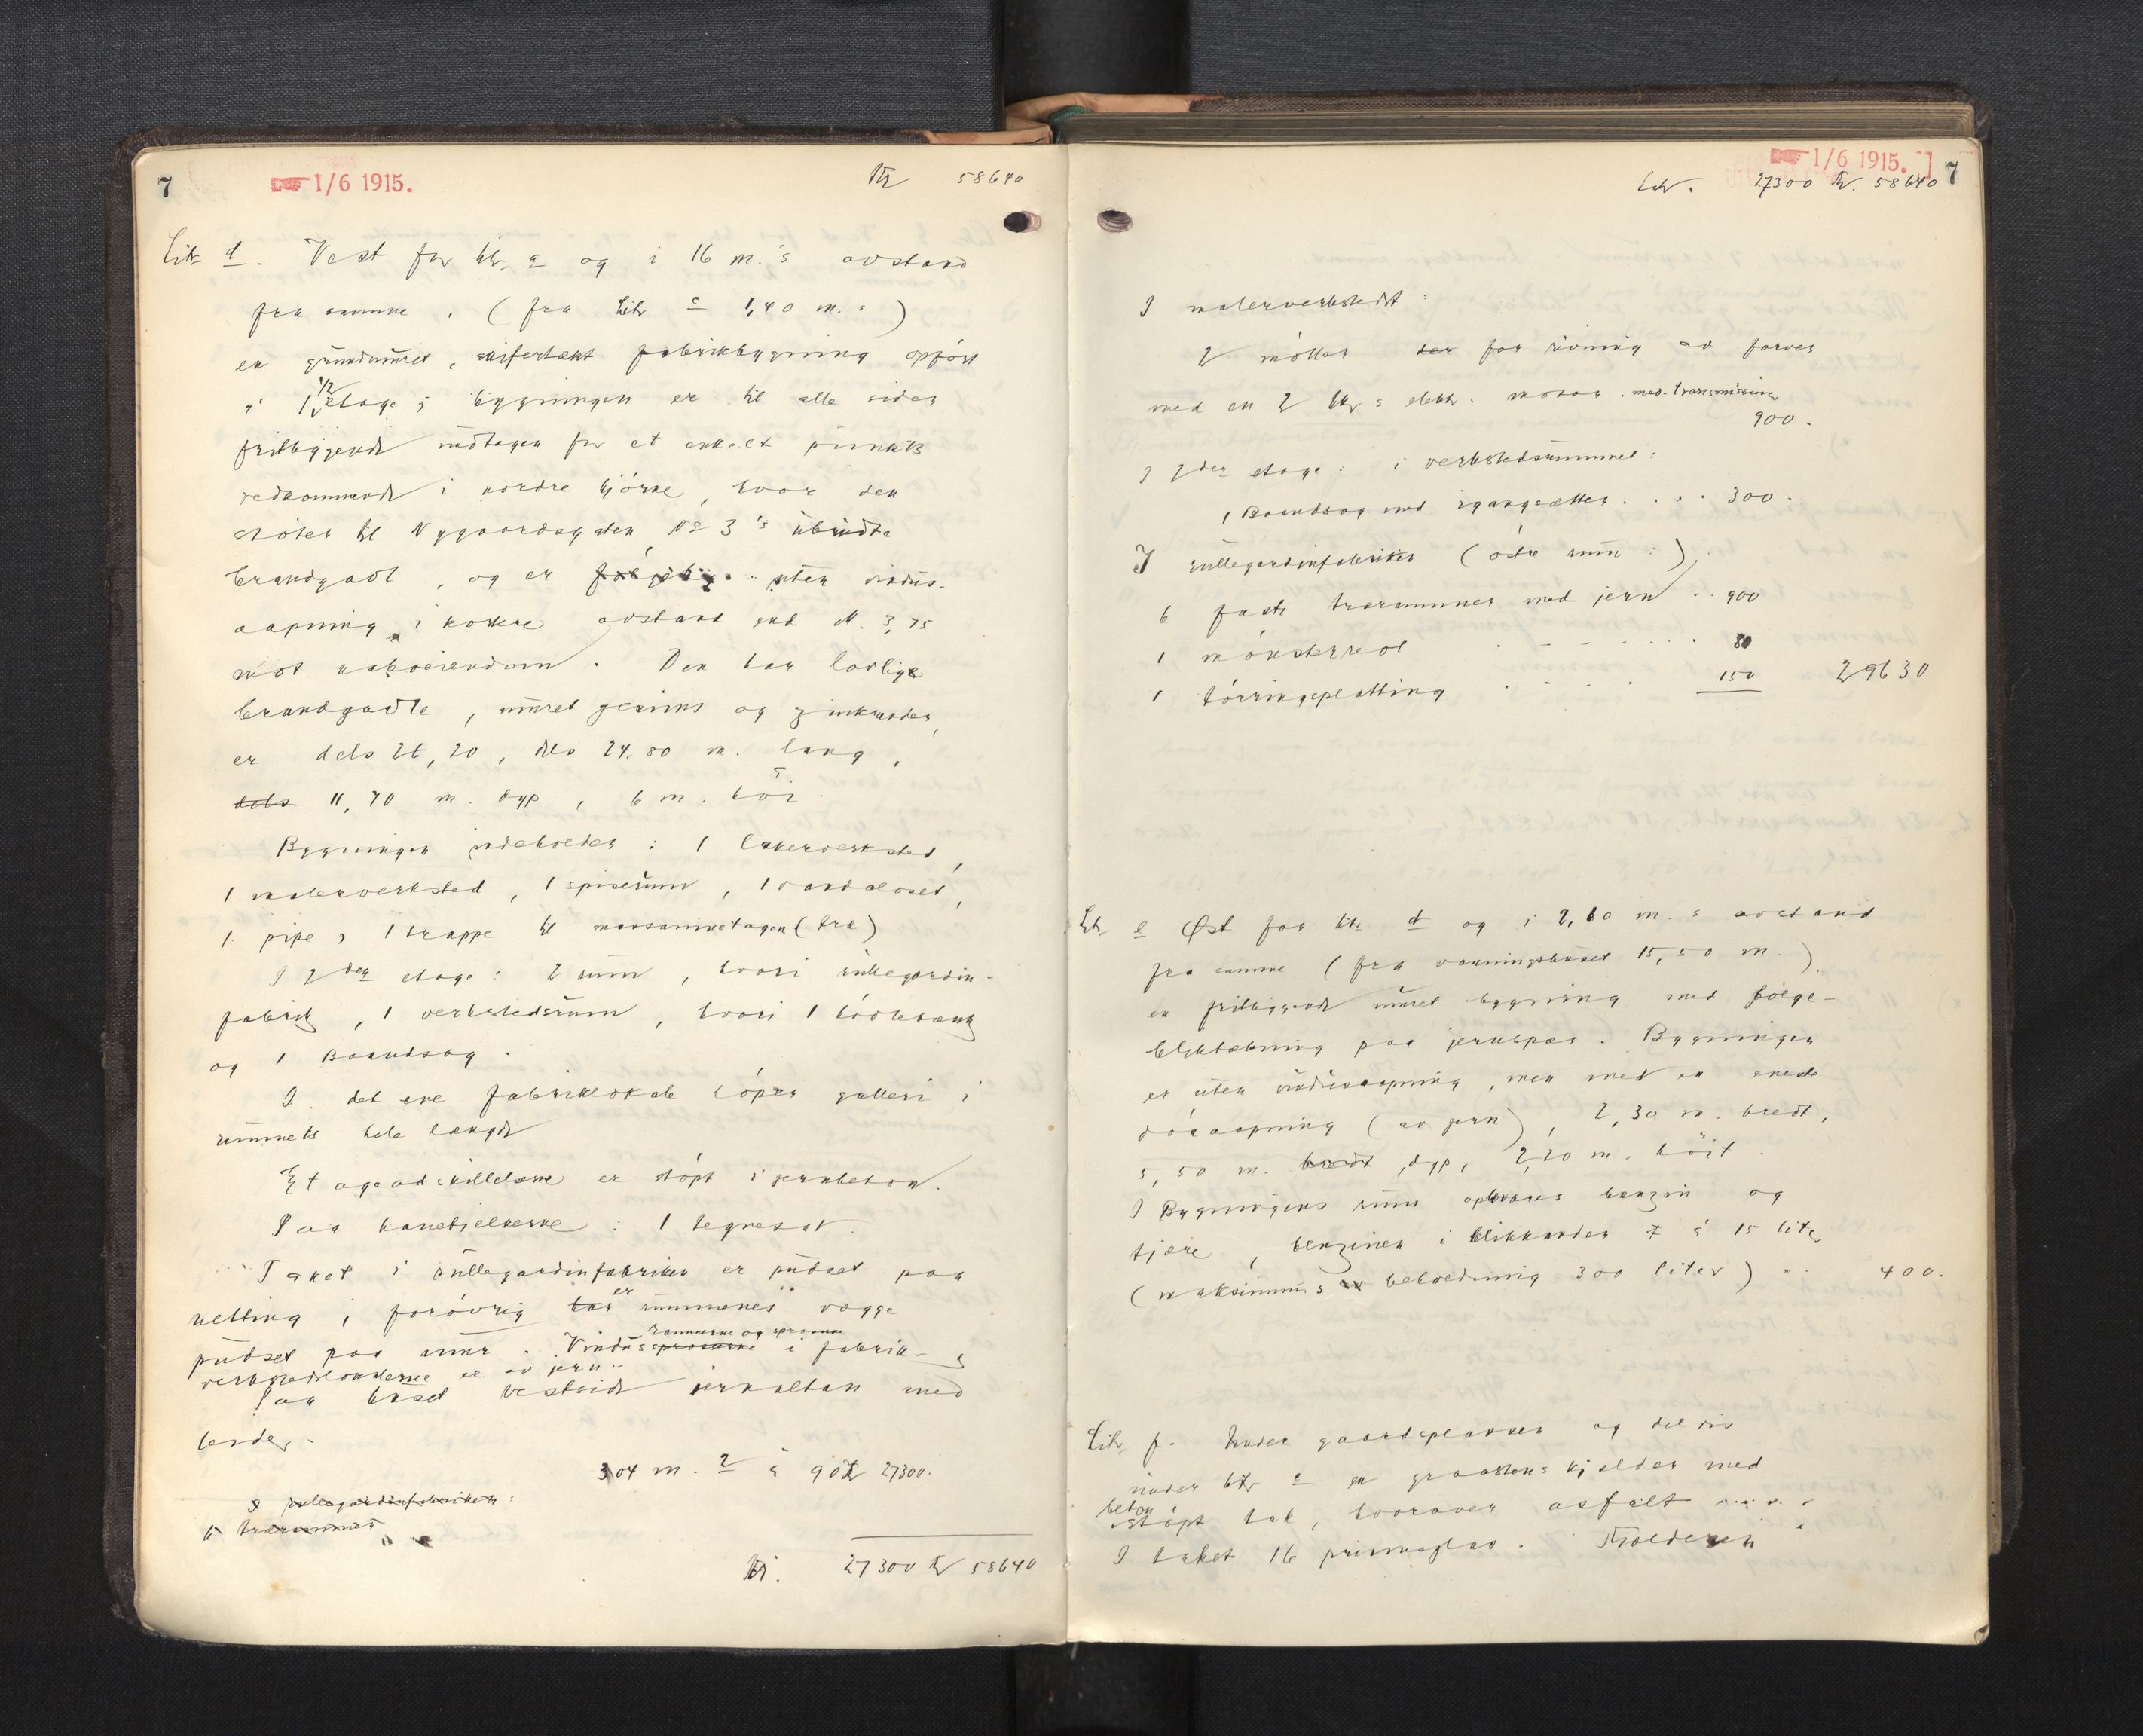 7 1/6 1915. Kr 58640
Litr. d. Vest for litr. a og i 16 m.'s avstand
fra samme, (fra litr c 1,40 m.s)
en grundmuret, skifertækt fabrikbygning opført
i 1 1/2 etage; bygningen er til alle sider
fritliggende undtagen for et enkelt punkts
vedkommende i nordre hjørne, hvor den
støter til Nygaardsgaten No 3's
brandgavl, og er uten vindus-
aapning i kortere avstand end M. 3,75
mot naboeiendom. Den har lovlige
brandgavle, muret gesims og zinkrender,
er dels 26,20, dels 24,80 m. lang,
dels 11,70 m. dyp, 6 m. høi.
Bygningen indeholder: 1 lakerverksted,
1 malerverksted, 1 spiserum, 1 vandcloset,
1 pipe, 1 trappe til (træ)
I 2den etage: 2 rum, hvori rullegardin-
fabrik, 1 verkstedsrum, hvori 1 høvlebænk
og 1 Baandsag.
I det ene fabriklokale løper galleri i
rummets hele længde
Etageadskillelserne er støpt i jernbeton.
Paa hanebjelkerne: 1 tegnesal.
Taket i rullegardinfabriken er pudset paa
netting, forøvrig har er rummenes vægge
pudset paa mur. Vindussprosserne rammerne og sprosserne i fabrik- &
verkstedlokalerne er av jern.
Paa huset vestside jernaltan med
leider.
304 m.2 à 90 Kr 27300.
I rullegardinfabriken:
6 trærammer
Kr. 27300 Kr 58640
1/6 1915. 7
Litr. 27300 Kr. 58640
I malerverkstedet:
2 møller der for rivning av farver
med en 2 Hk's elektr. motor. med transmission
900.
I 2den etage: i verkstedsrummet:
1 Baandsag med igangsætter . . . 300.
I rullegardinfabriken (østre rum:)
6 faste trærammer med jern . . 900
1 mønsterreol . . . . 80
1 tørringsplatting . . . . 150 29630
Litr. e Øst for litr. d og i 2,60 m.s avstand
fra samme (fra vaaningshuset 15,50 m.)
en fritliggende muret bygning med bølge-
bliktækning paa jernspær. Bygningen
er uten vindusaapning, men med en eneste
døraapning (av jern), 2,30 m. bredt,
5,50 m. bredt, dyp, 2,20 m. høit.
I Bygningens rum opbevares benzin og
tjære, benzinen i blikkander à 15 liter
(maksimums beholdning 300 liter) . . 400.
Litr. f. Under gaardsplassen og delvis
under litr. c en graastens kjelder med
beton støpt tak, hvorover asfalt . . . .
I taket 16 prismeglas. Kjelderen